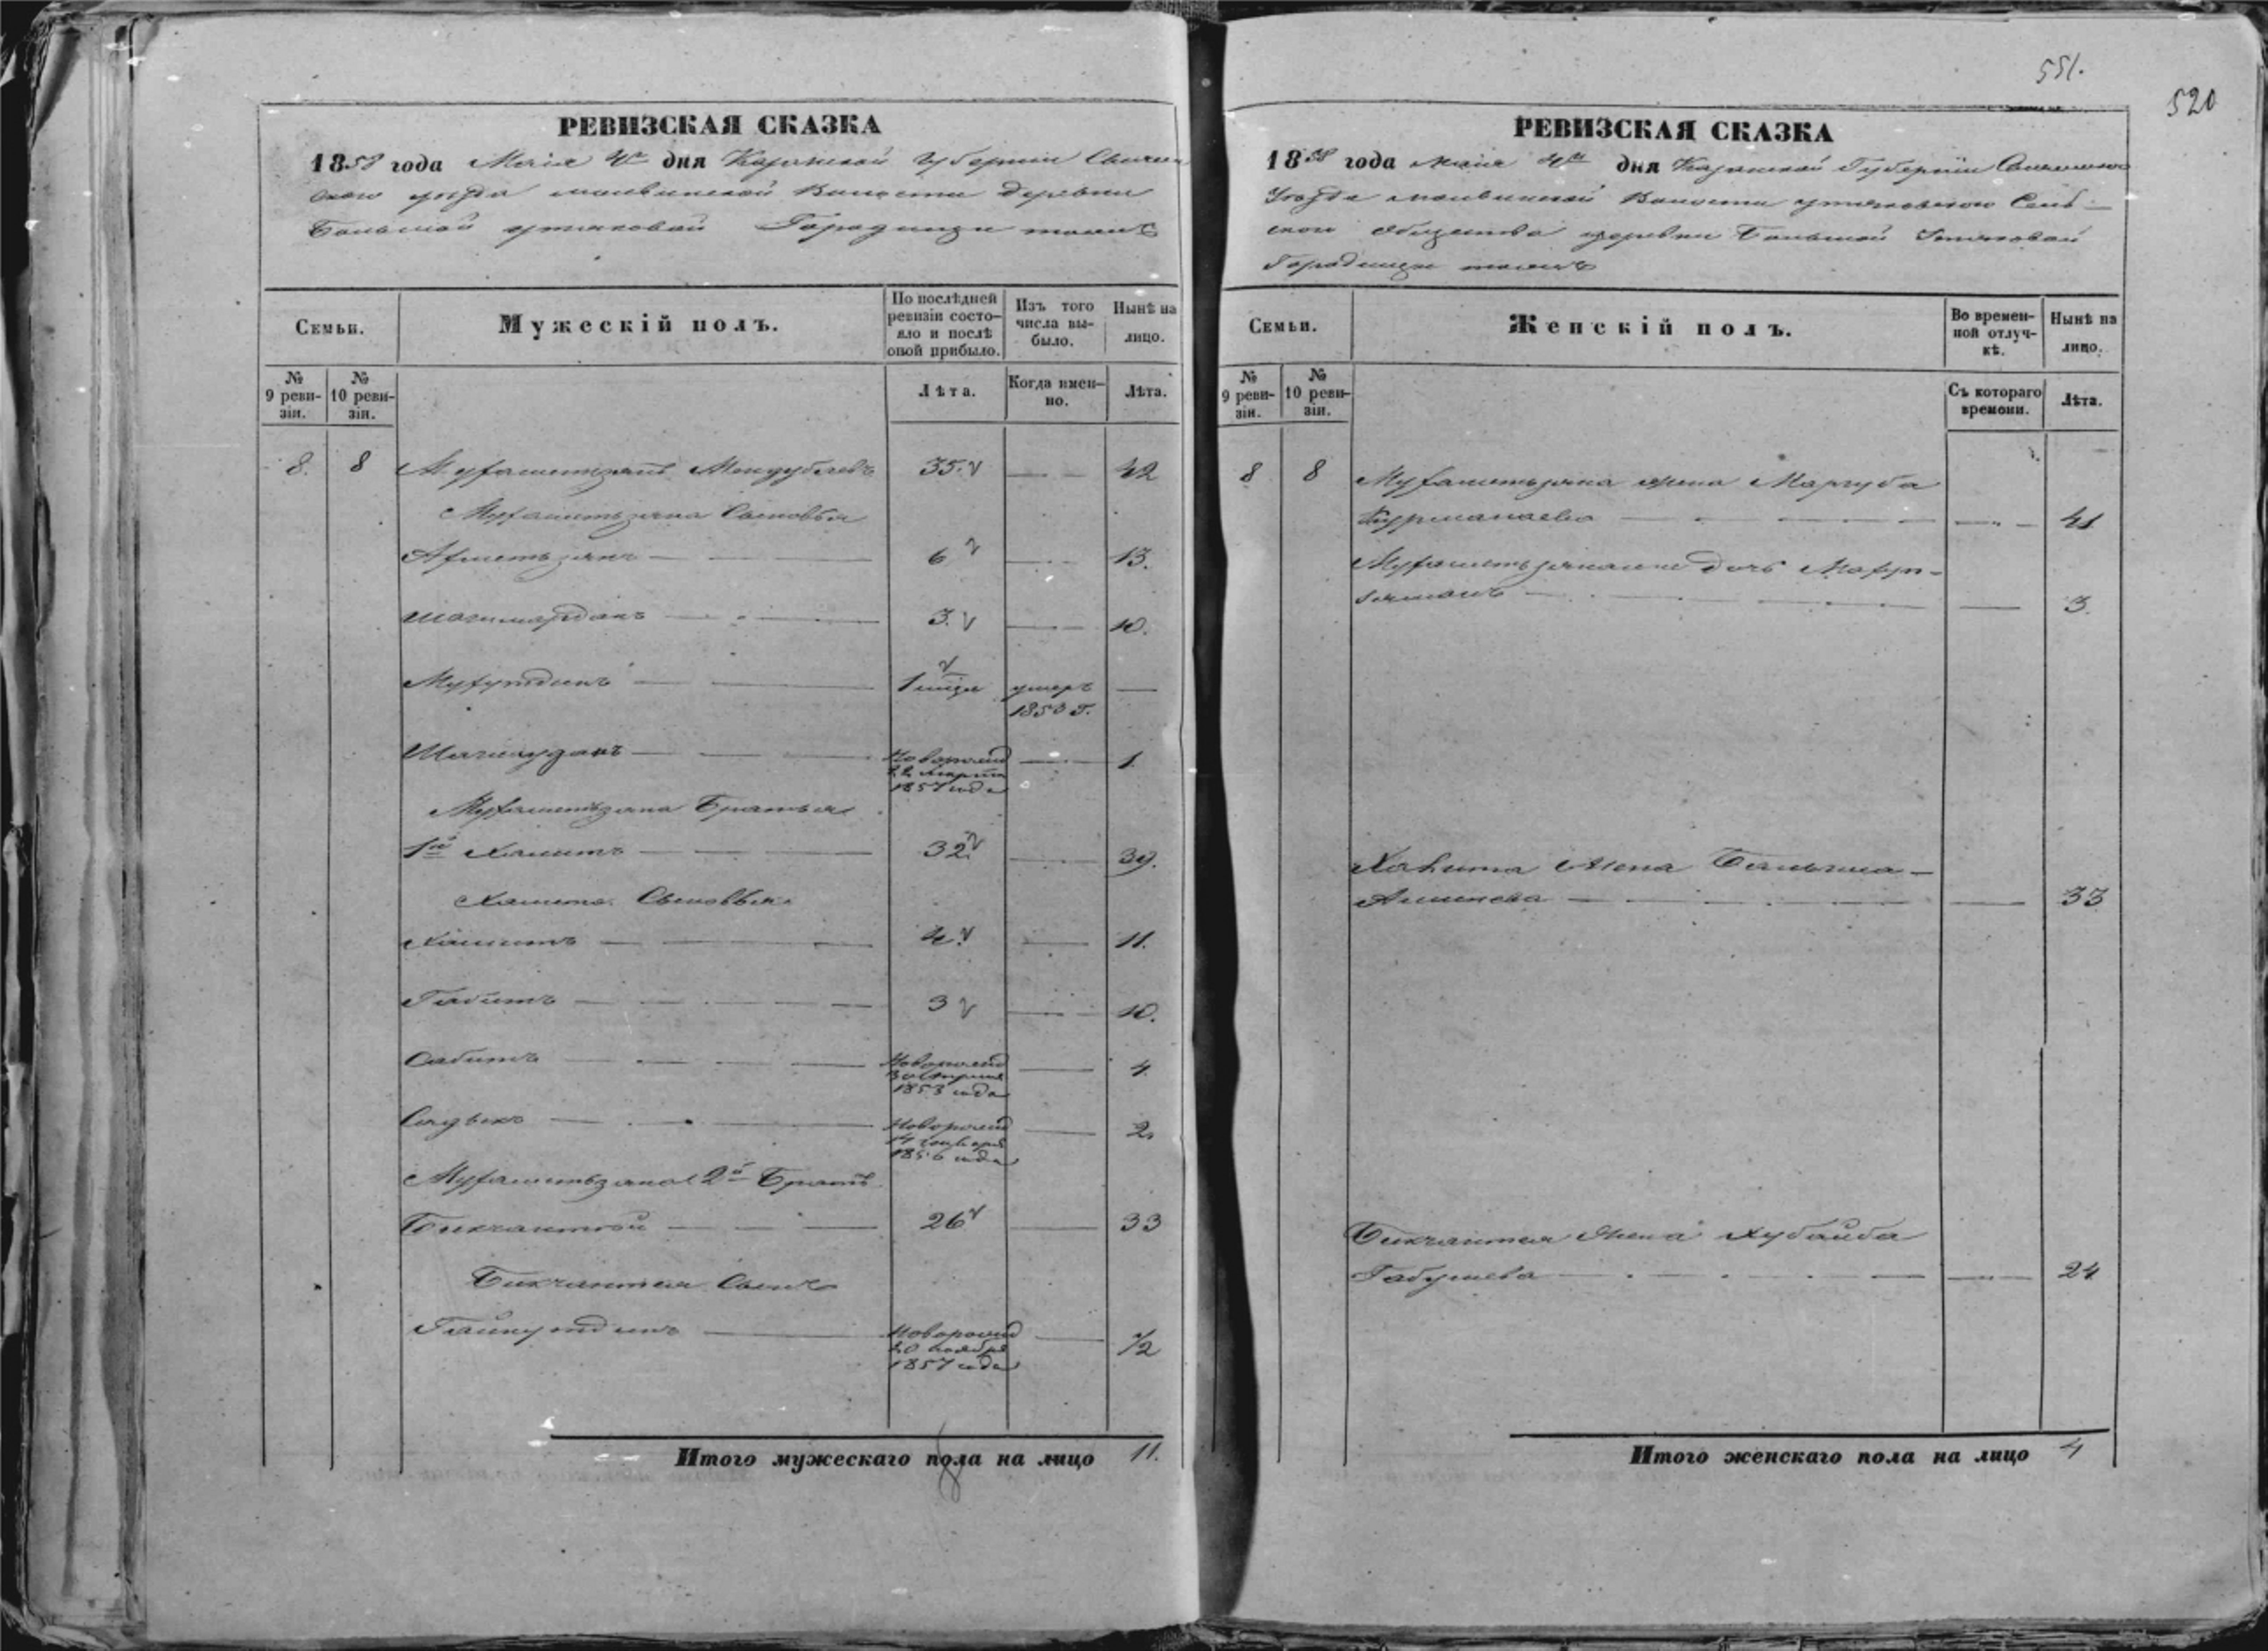 551.
520
РЕВИЗСКАЯ СКАЗКА
1858 года Маія 4го дня Казанской Губерніи Свіяж
скаго уѣзда Волости деревни
Большой Городищи тожъ
Семьи.
Мужескій полъ.
По послѣдней ревизіи состояло и послѣ оной прибыло.
Изъ того числа выбыло.
Нынѣ на лицо.
№ 9 ревизіи.
№ 10 ревизіи.
Лѣта.
Когда именно.
Лѣта.
8. 8 Мухаметзянъ 35. 42
Мухаметзяна Сыновья
Ахметзянъ 6 13.
Шагимарданъ 3. 10.
Мухутдинъ 1 умеръ
1850 г.
Новорожд 1.
22 Марта
1857 года
Мухаметзяна Братья
1й Хамитъ 32. 39.
Хамита Сыновья
4. 11.
Габитъ 3 10.
Сабитъ Новорожд 4.
30 Апреля
1853 года
Садыкъ Новорожд 2.
14 Января
1856 года
Мухаметзяна 2й Братъ
Бикчантай 26 33
Бикчантая Сынъ
Гайнутдинъ Новорожд 1/2
20 Ноября
1857 года
Итого мужескаго пола на лицо 11.
РЕВИЗСКАЯ СКАЗКА
1858 года Маія 4го дня Казанской Губерніи
Уѣзда Волости Сель-
скаго Общества деревни Большой
Городищи тожъ
Семьи.
Женскій полъ.
Во временной отлучкѣ.
Нынѣ на лицо.
№ 9 ревизіи.
№ 10 ревизіи.
Съ котораго времени.
Лѣта.
8 8 Мухаметьзяна жена Маргуба
Курманаева 41
Мухаметьзяна дочь
3.
Хамита Жена
33
Бикчантая Жена Хубайба
Габушева 24
Итого женскаго пола на лицо 4